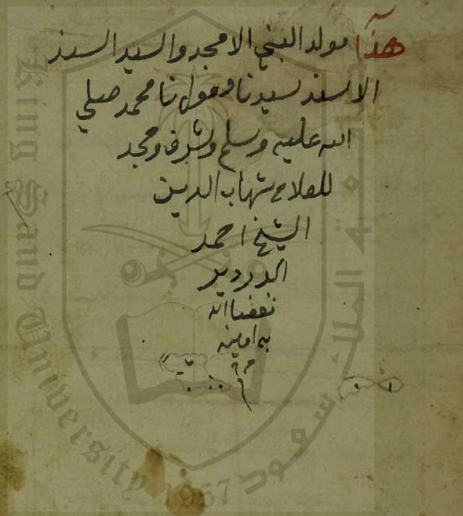 هذا مولد النبي الامجد والسيد السند
الاسعد سيدنا ومولانا محمد صلي
الله عليه وسلم وشرف ومجد
للعلامة شهاب الدين
الشيخ احمد
الدردير
نفعنا الله
به امين
م م
King Saud University
1957
جامعة الملك سعود